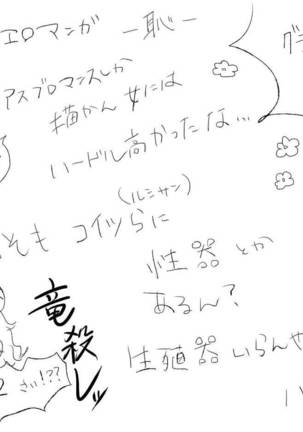 エロマンガ －恥－
アスブロマンスしか
描かん女には
ハードル高かったな…
(ルシサン)
そもコイツらに
性器とか
あるん？
生殖器いらんや
竜殺しッ
さい!??